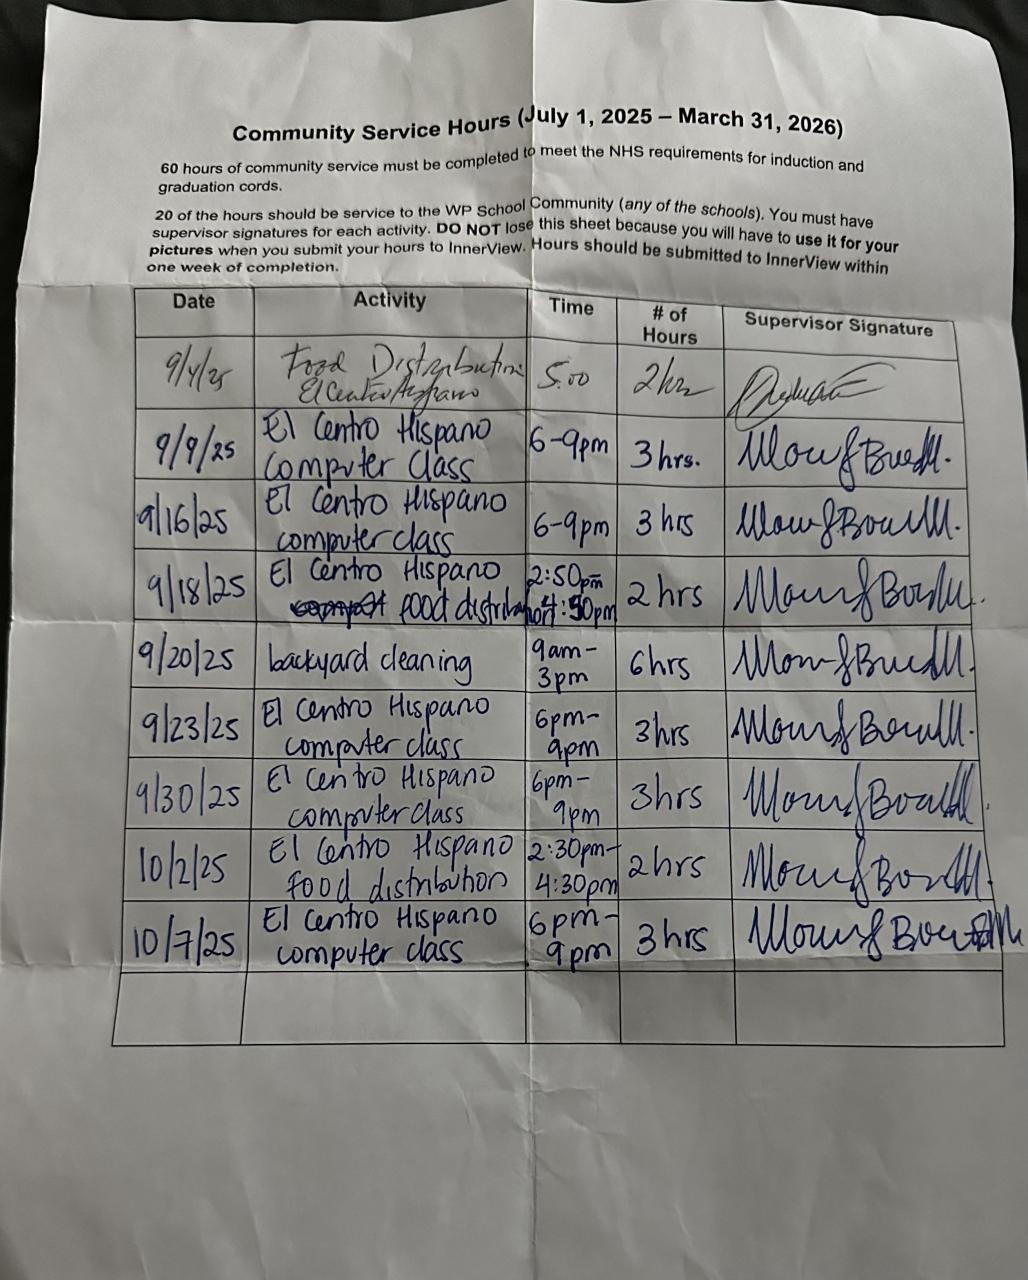 Community Service Hours (July 1, 2025 – March 31, 2026)
60 hours of community service must be completed to meet the NHS requirements for induction and
graduation cords.
20 of the hours should be service to the WP School Community (any of the schools). You must have
supervisor signatures for each activity. DO NOT lose this sheet because you will have to use it for your
pictures when you submit your hours to InnerView. Hours should be submitted to InnerView within
one week of completion.
Date Activity Time # of Hours Supervisor Signature
9/4/25 Food Distribution 5:00 2hrs
El Centro Hispano
9/9/25 El Centro Hispano 6-9pm 3hrs.
Computer Class
9/16/25 El Centro Hispano 6-9pm 3 hrs
computer class
9/18/25 El Centro Hispano 2:50pm 2 hrs
food distribution 4:50pm
9/20/25 backyard cleaning 9am- 6hrs
3pm
9/23/25 El Centro Hispano 6pm- 3hrs
computer class 9pm
9/30/25 El Centro Hispano 6pm- 3hrs
computer class 9pm
10/2/25 El Centro Hispano 2:30pm- 2hrs
food distribution 4:30pm
10/7/25 El Centro Hispano 6pm- 3hrs
computer class 9pm